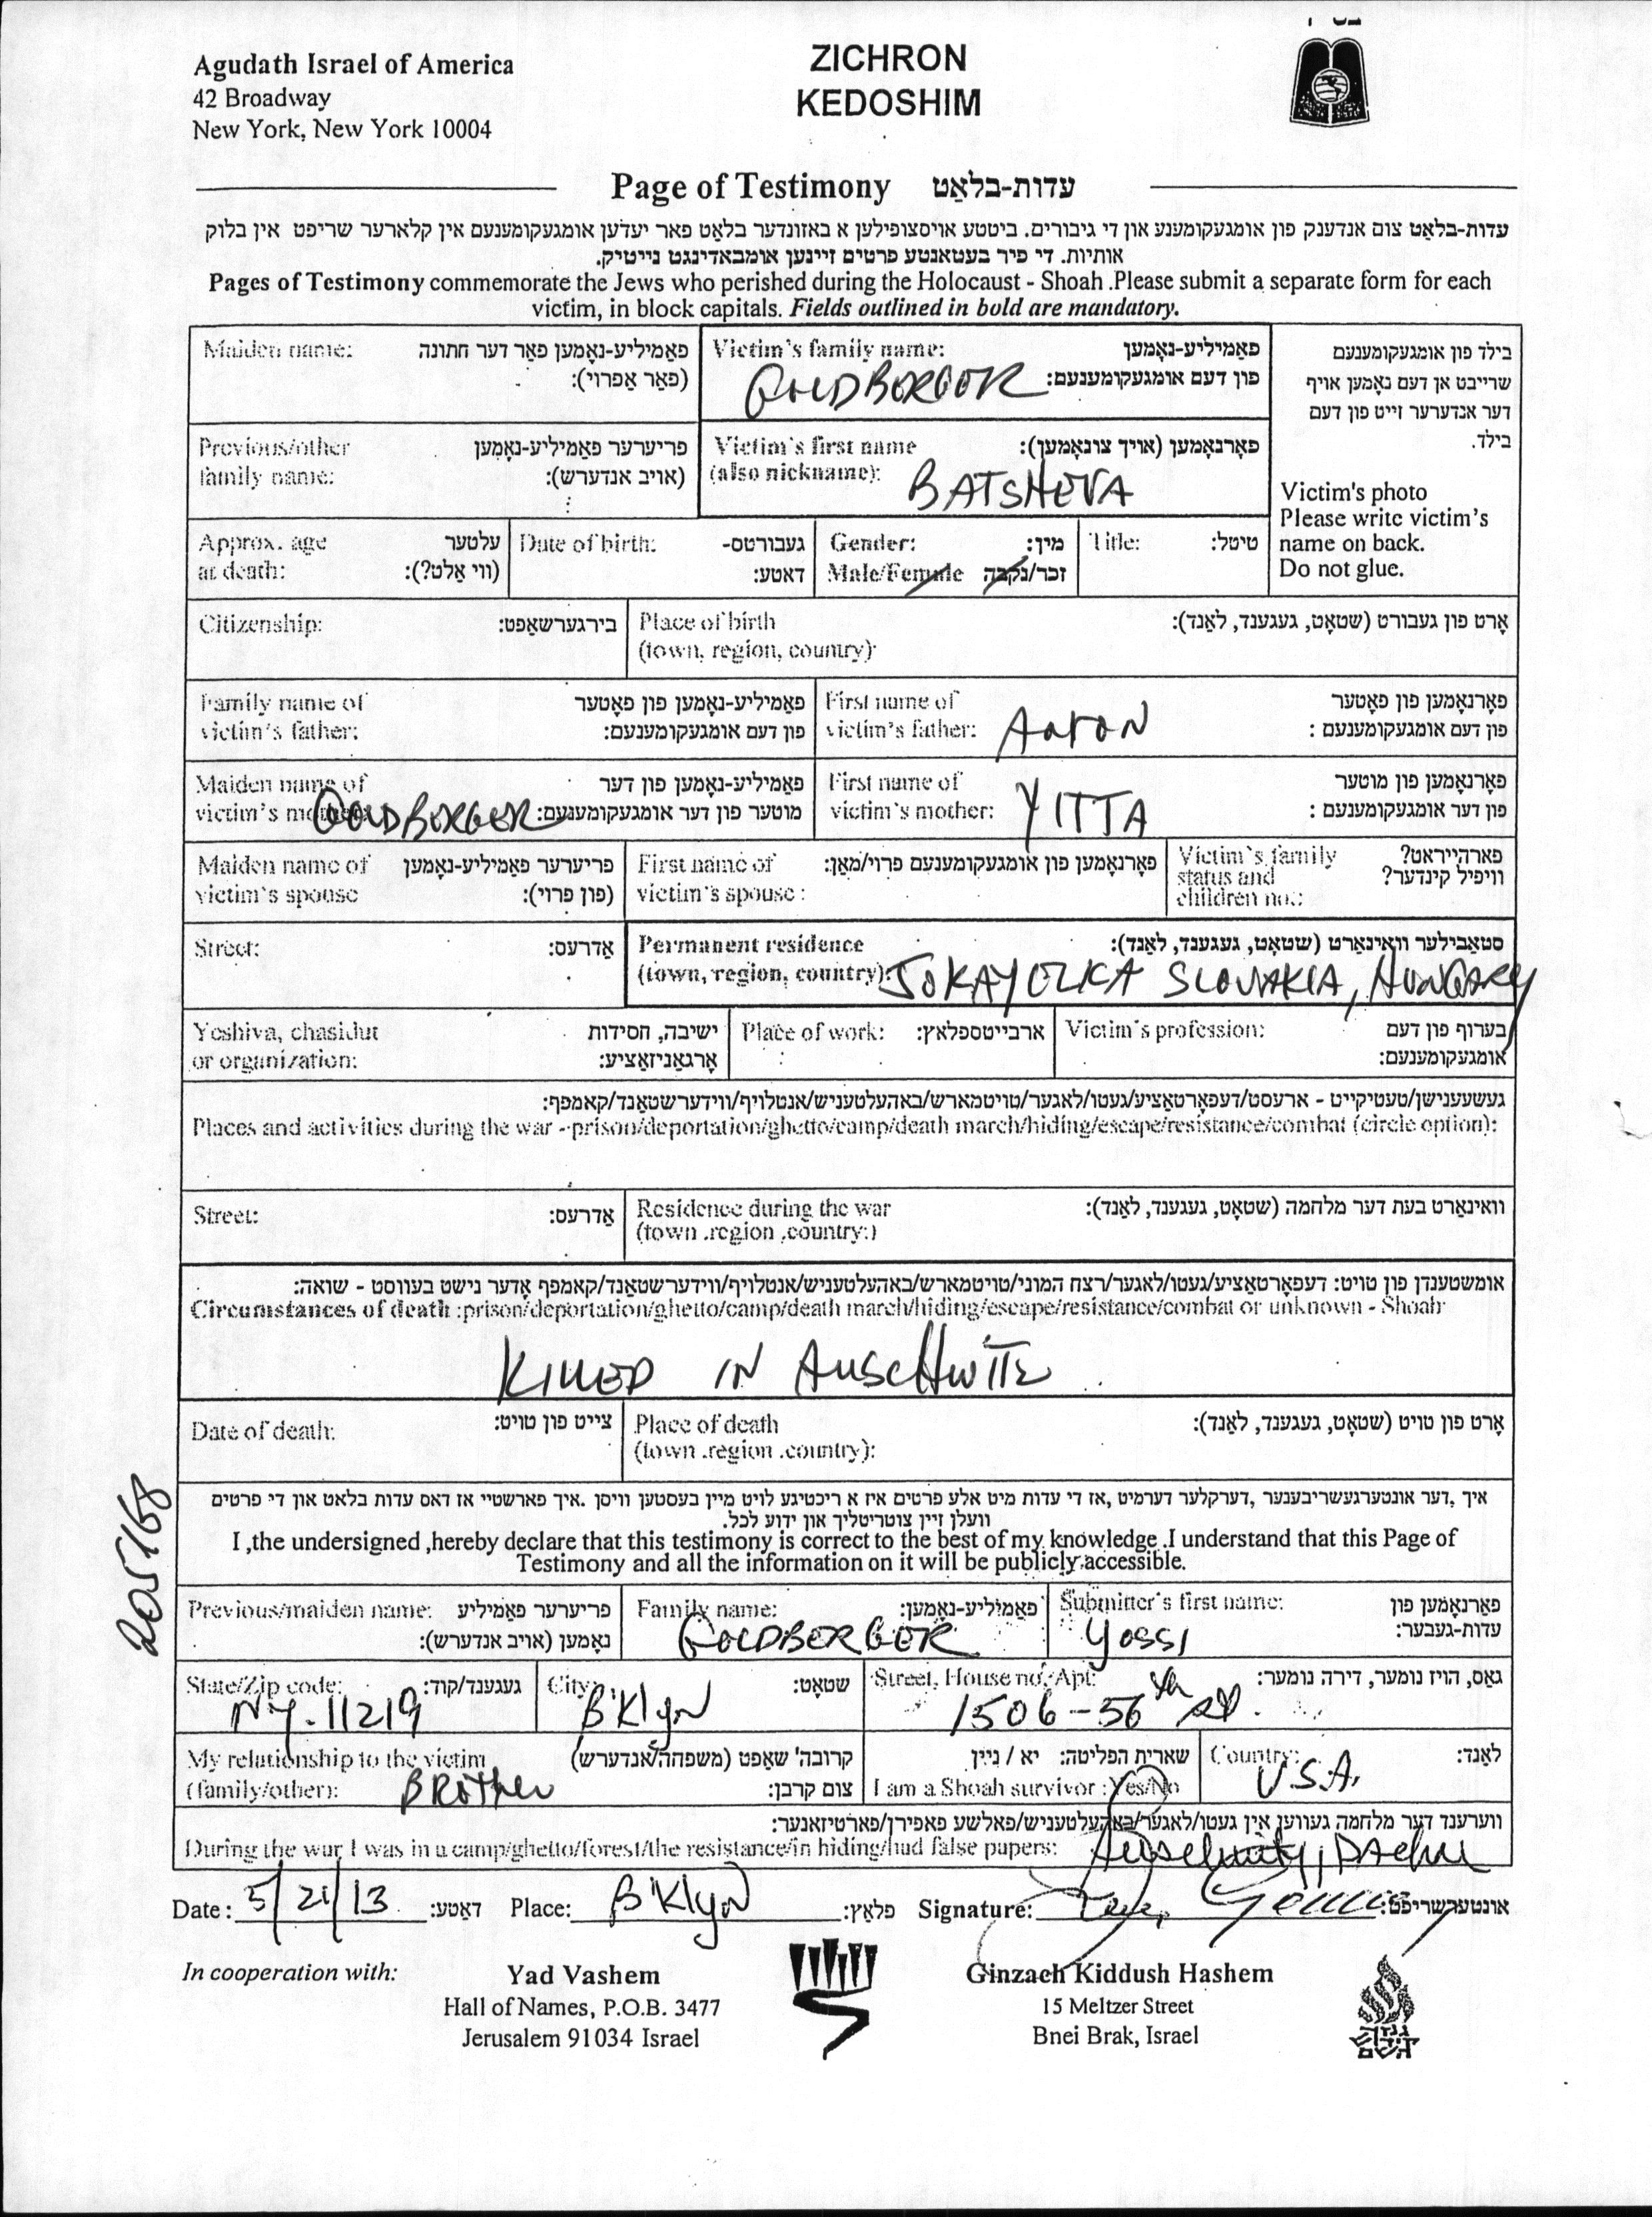 Agudath Israel of America
42 Broadway
New York, New York 10004
ZICHRON
KEDOSHIM
Page of Testimony עדות-בלאַט
עדות-בלאַט צום אנדענק פון אומגעקומענע און די גיבורים. ביטטע אויסצופילען א באזונדער בלאַט פאר יעדען אומגעקומענעם אין קלארער שריפט אין בלוק
אותיות. די פיר בעטאנטע פרטים זיינען אומבאדינגט נייטיק.
Pages of Testimony commemorate the Jews who perished during the Holocaust - Shoah .Please submit a separate form for each
victim, in block capitals. Fields outlined in bold are mandatory.
Maiden name: פאַמיליע-נאָמען פאַר דער חתונה
(פאַר אַפרוי):
Victim's family name: פאַמיליע-נאָמען
פון דעם אומגעקומענעם: GOLDBERGER
בילד פון אומגעקומענעם
שרייבט אן דעם נאָמען אויף
דער אנדערער זייט פון דעם
בילד.
Victim's photo
Please write victim's
name on back.
Do not glue.
Previous/other פריערער פאַמיליע-נאָמען
family name: (אויב אנדערש):
Victim's first name פאָרנאָמען (אויך צונאָמען):
(also nickname): BATSHEVA
Approx. age עלטער
at death: (ווי אַלט?):
Date of birth: געבורטס-
דאטע:
Gender: מין:
Male/Female זכר/נקבה
Title: טיטל:
Citizenship: בירגערשאַפט:
Place of birth אָרט פון געבורט (שטאָט, געגענד, לאַנד):
(town, region, country):
Family name of פאַמיליע-נאָמען פון פאָטער
victim's father: פון דעם אומגעקומענעם:
First name of פאָרנאָמען פון פאָטער
victim's father: Aaron פון דעם אומגעקומענעם :
Maiden name of פאַמיליע-נאָמען פון דער
victim's mother: GOLDBERGER מוטער פון דער אומגעקומענעם:
First name of פאָרנאָמען פון מוטער
victim's mother: YITTA פון דער אומגעקומענעם :
Maiden name of פריערער פאַמיליע-נאָמען
victim's spouse (פון פרוי):
First name of פאָרנאָמען פון אומגעקומענעם פרוי/מאַן:
victim's spouse :
Victim's family פארהייראט?
status and וויפיל קינדער?
children no.:
Street: אַדרעס:
Permanent residence סטאַבילער וואוינאָרט (שטאָט, געגענד, לאַנד):
(town, region, country): SLOVAKIA, HUNGARY
Yeshiva, chasidut ישיבה, חסידות
or organization: אָרגאַניזאַציע:
Place of work: ארבייטספלאץ:
Victim's profession: בערוף פון דעם
אומגעקומענעם:
געשעענישן/טעטיקייט - ארעסט/דעפאָרטאַציע/געטו/לאַגער/טויטמארש/באהעלטעניש/אנטלויף/ווידערשטאַנד/קאמפף:
Places and activities during the war -prison/deportation/ghetto/camp/death march/hiding/escape/resistance/combat (circle option):
Street: אַדרעס:
Residence during the war וואוינארט בעת דער מלחמה (שטאָט, געגענד, לאַנד):
(town .region .country:)
אומשטענדן פון טויט: דעפאָרטאַציע/געטו/לאגער/רצח המוני/טויטמארש/באהעלטעניש/אנטלויף/ווידערשטאַנד/קאמפף אָדער נישט בעווסט - שואה:
Circumstances of death :prison/deportation/ghetto/camp/death march/hiding/escape/resistance/combat or unknown - Shoah:
KILLED IN AUSCHWITZ
Date of death: צייט פון טויט:
Place of death אָרט פון טויט (שטאָט, געגענד, לאַנד):
(town .region .country):
איך ,דער אונטערגעשריבענער ,דערקלער דערמיט ,אז די עדות מיט אלע פרטים איז א ריכטיגע לויט מיין בעסטען וויסן .איך פארשטיי אז דאס עדות בלאט און די פרטים
וועלן זיין צוטריטליך און ידוע לכל.
I ,the undersigned ,hereby declare that this testimony is correct to the best of my knowledge .I understand that this Page of
Testimony and all the information on it will be publicly accessible.
205168
Previous/maiden name: פריערער פאַמיליע
נאָמען (אויב אנדערש):
Family name: פאַמיליע-נאָמען:
GOLDBERGER
Submitter's first name: פאַרנאָמען פון
עדות-געבער: YOSSI
State/Zip code: געגענד/קוד:
NY. 11219
City: שטאָט:
B'Klyn
Street, House no, Apt: גאַס, הויז נומער, דירה נומער:
1506-56th st.
My relationship to the victim קרובה' שאַפט (משפחה/אנדערש)
(family/other): BRother צום קרבן:
שארית הפליטה: יא / ניין
I am a Shoah survivor :Yes/No
Country: לאַנד:
U.S.A.
ווערענד דער מלחמה געווען אין געטו/לאגער/באהעלטעניש/פאלשע פאפירן/פארטיזאנער:
During the war I was in a camp/ghetto/forest/the resistance/in hiding/had false papers: Auschwitz,
Date: 5/21/13 דאַטע: Place: B'Klyn פלאַץ: Signature: אונטערשריפט:
In cooperation with:
Yad Vashem
Hall of Names, P.O.B. 3477
Jerusalem 91034 Israel
Ginzach Kiddush Hashem
15 Meltzer Street
Bnei Brak, Israel
גנזך
קידוש
השם